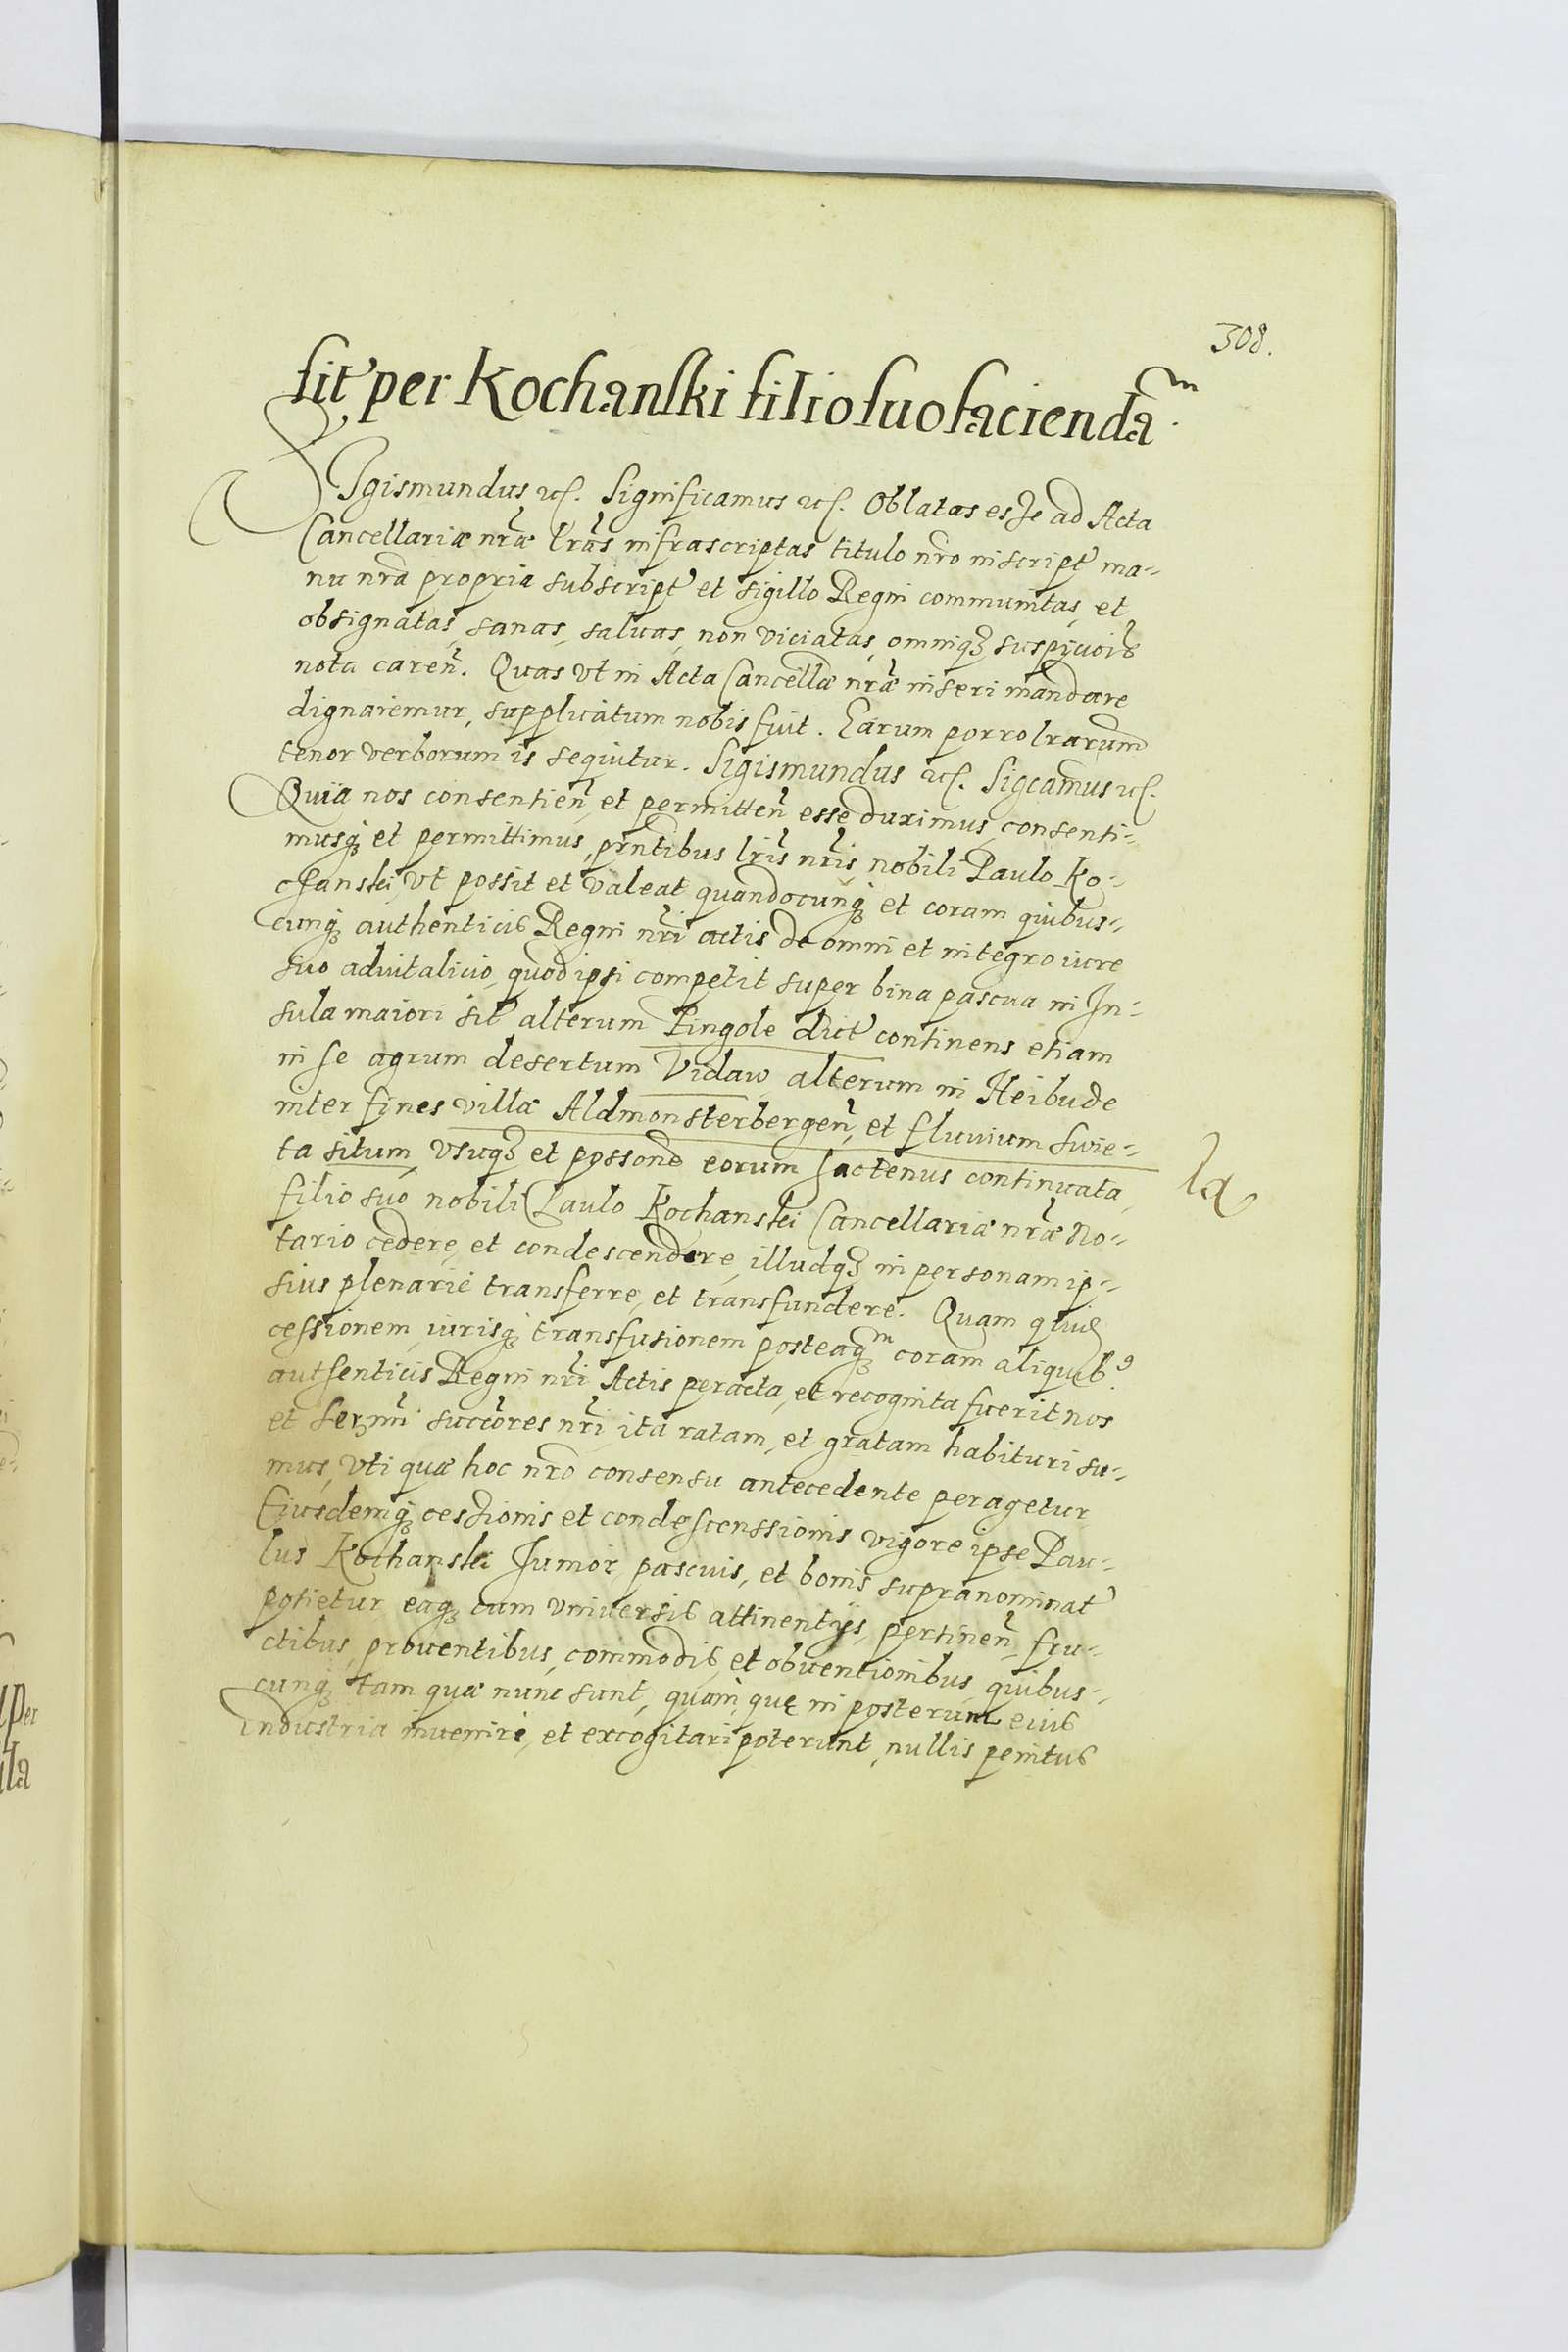 308.
sit' per Kochanski filio suo faciendã m.
Sigismundus etc. Significamus etc. Oblatas esse ad Acta
Cancellariæ nr̃æ lr̃as infrascriptas titulo nr̃o inscript' ma-
nu nr̃a propria subscript' et sigillo Regni communitas, et
obsignatas, sanas, saluas, non viciatas, omniq; suspicioĩs
nota careñ. Quas vt in Acta Cancellæ nr̃æ inseri mandare
dignaremur, supplicatum nobis fuit. Earum porro lrarum
tenor verborum is sequitur. Sigismundus etc. Sigcamus etc.
Quia nos consentieñ, et permitteñ esse duximus, consenti-
musq; et permittimus, prñtibus lr̃is nr̃is nobili Paulo Ko-
chanski, vt possit et valeat quandocunq; et coram quibus-
cunq; authenticis Regni nr̃i actis de omni et integro iure
suo aduitalicio, quod ipsi competit super bina pascua in In-
sula maiori sit' alterum Pingole dict' continens etiam
in se agrum desertum Vidaw alterum in Heibude
inter fines villæ Aldmonsterbergeñ, et fluuium Swie-
ta situm, vsuq; et possone eorum hactenus continuata,
la
filio suo nobili Paulo Kochanski Cancellariæ nr̃æ No-
tario cedere, et condescendere, illudq; in personam ip-
sius plenarie transferre, et transfundere. Quam quid
cessionem, iurisq; transfusionem posteaq;m coram aliquib9
authenticis Regni nr̃i Actis peracta, et recognita fuerit nos
et Serm̃i succores nr̃i, ita ratam, et gratam habituri su-
mus, vti quæ hoc nr̃o consensu antecedente peragetur
Eiusdemq; cessionis et condescenssionis vigore ipse Pau-
lus Kochanski Junior, pascuis, et bonis supranominat'
potietur, eaq; cum vniuersis attinentijs, pertineñ, fru-
ctibus, prouentibus, commodis, et obuentionibus, quibus-
cunq; tam quæ nunc sunt, quam, quę in posterum eius
industria inueniri, et excogitari poterunt, nullis penitus